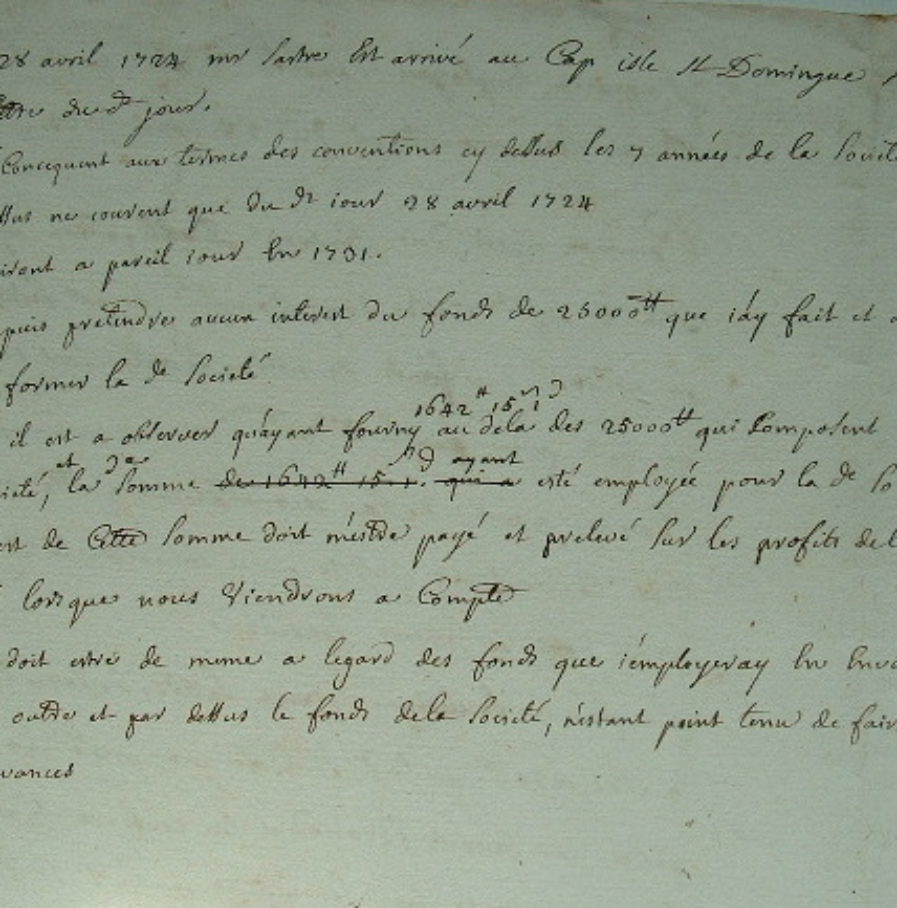 28 avril 1724 mr Sastre Est arrivé au Cap isle St Domingue
du dt jour.
Concequent aux termes des conventions cy dessus les 7 années de la Societé
ssus ne courent que du dt iour 28 avril 1724
iront a pareil iour En 1731.
puis pretendre aucun interest du fonds de 25000tt que i'ay fait et
former la de Societé
1642tt 15 s 1 d
il est a observer qu'ayant fourny au dela des 25000tt qui Composent
et de ayant
cieté, la Somme de 1642tt 15 s 1 d. qui a esté employée pour la de So
est de Cette Somme doit m'estre payé et prelevé sur les profits de l
lorsque nous Viendrons a Compte
doit estre de meme a legard des fonds que i'employeray En Envo
outre et par dessus le fonds dela Societé, n'estant point tenu de fair
vances